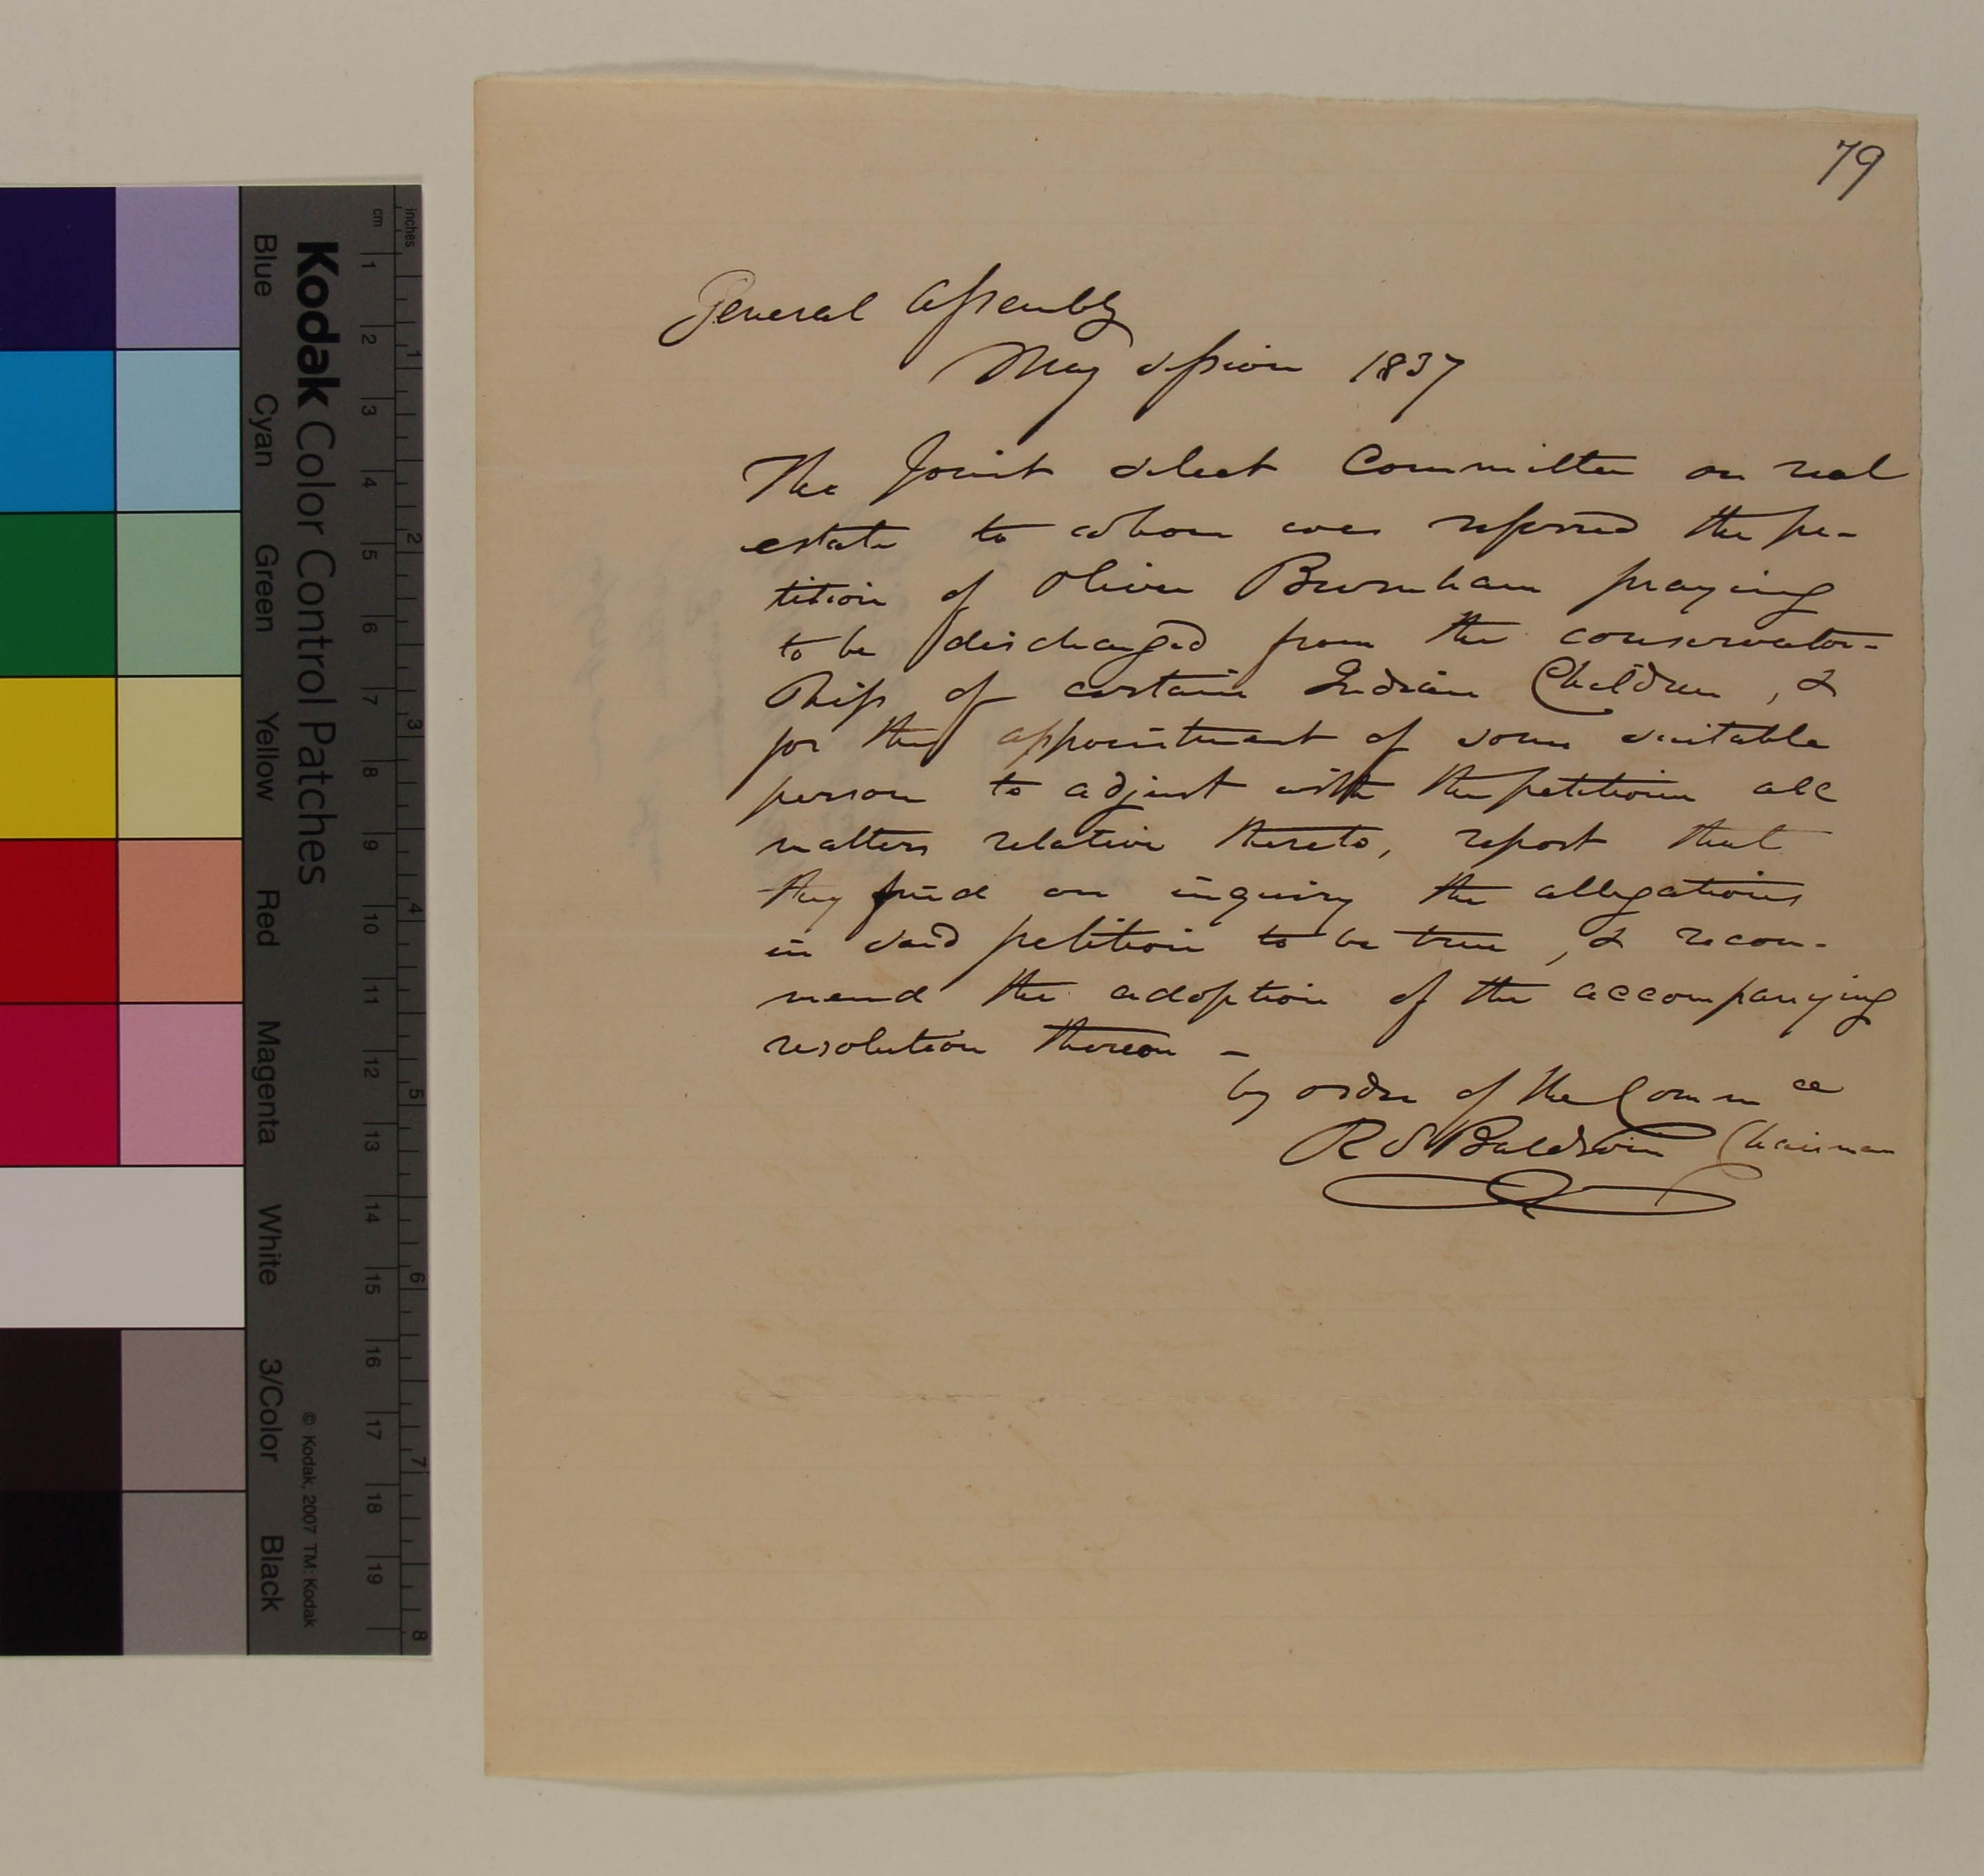 79
General Assembly
May session 1837
The Joint select Committee on real
estate to whom was referred the pe-
tition of Oliver Burnham praying
to be discharged from the conservator-
ship of certain Indian Children, &
for the appointment of some suitable
person to adjust with the petitioner all
matters relative thereto, report that
they find on inquiry the allegations
in said petition to be true, & recom-
mend the adoption of the accompanying
resolution thereon -
by order of the Commee
R S Baldwin Chairman
Kodak Color Control Patches
© Kodak, 2007 TM: Kodak
Blue Cyan Green Yellow Red Magenta White 3/Color Black
cm 1 2 3 4 5 6 7 8 9 10 11 12 13 14 15 16 17 18 19
inches 1 2 3 4 5 6 7 8